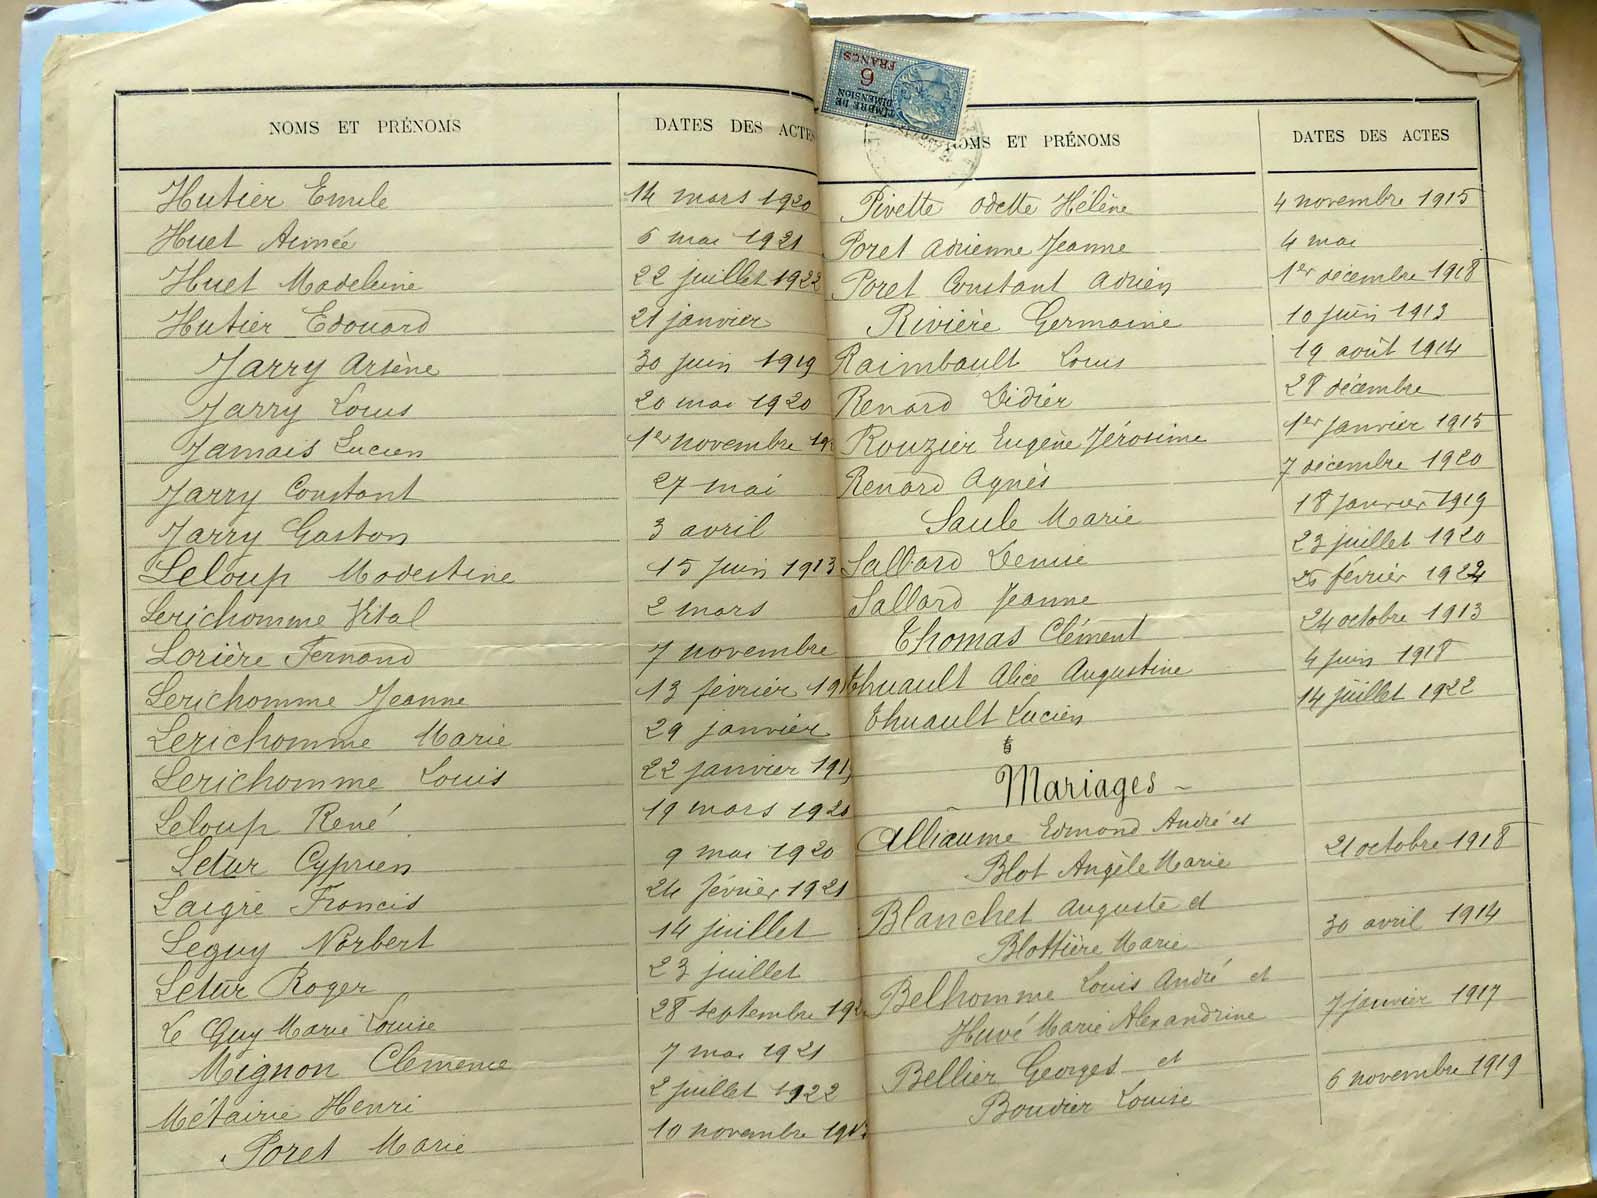 NOMS ET PRÉNOMS DATES DES ACTES
Hutier Emile 14 mars 1920
Huet Aimée 6 mai 1921
Huet Madeleine 22 juillet 1922
Hutier Edouard 21 janvier
Jarry Arsène 30 juin 1919
Jarry Louis 20 mai 1920
Jamais Lucien 1er novembre
Jarry Constant 27 mai
Jarry Gaston 3 avril
Leloup Modestine 15 juin 1913
Lerichomme Vital 2 mars
Lorière Fernand 7 novembre
Lerichomme Jeanne 13 février
Lerichomme Marie 29 janvier
Lerichomme Louis 22 janvier
Leloup René 19 mars 1920
Letur Cyprien 9 mai 1920
Laigre Francis 24 février 1921
Leguy Norbert 14 juillet
Letur Roger 23 juillet
Le Guy Marie Louise 28 septembre
Mignon Clémence 7 mai 1921
Métairie Henri 2 juillet 1922
Poret Marie 10 novembre
TIMBRE DE
DIMENSION
6
FRANCS
NOMS ET PRÉNOMS DATES DES ACTES
Pivette Odette Hélène 4 novembre 1915
Poret Adrienne Jeanne 4 mai
Poret Constant Adrien 1er décembre 1918
Rivière Germaine 10 juin 1913
Raimbault Louis 19 août 1914
Renard Didier 28 décembre
Rouzier Eugène Jérosime 1er janvier 1915
Renard Agnès 7 décembre 1920
Saule Marie 18 janvier 1919
Sallard Denise 23 juillet 1920
Sallard Jeanne février 1922
Thomas Clément 24 octobre 1913
Thuault Alice Augustine 4 juin 1918
Thuault Lucien 14 juillet 1922
Mariages
Alliaume Edmond André et
Blot Angèle Marie 21 octobre 1918
Blanchet Auguste et
Blottière Marie 30 avril 1914
Belhomme Louis André et
Huvé Marie Alexandrine 7 janvier 1917
Bellier Georges et
Bouvier Louise 6 novembre 1919